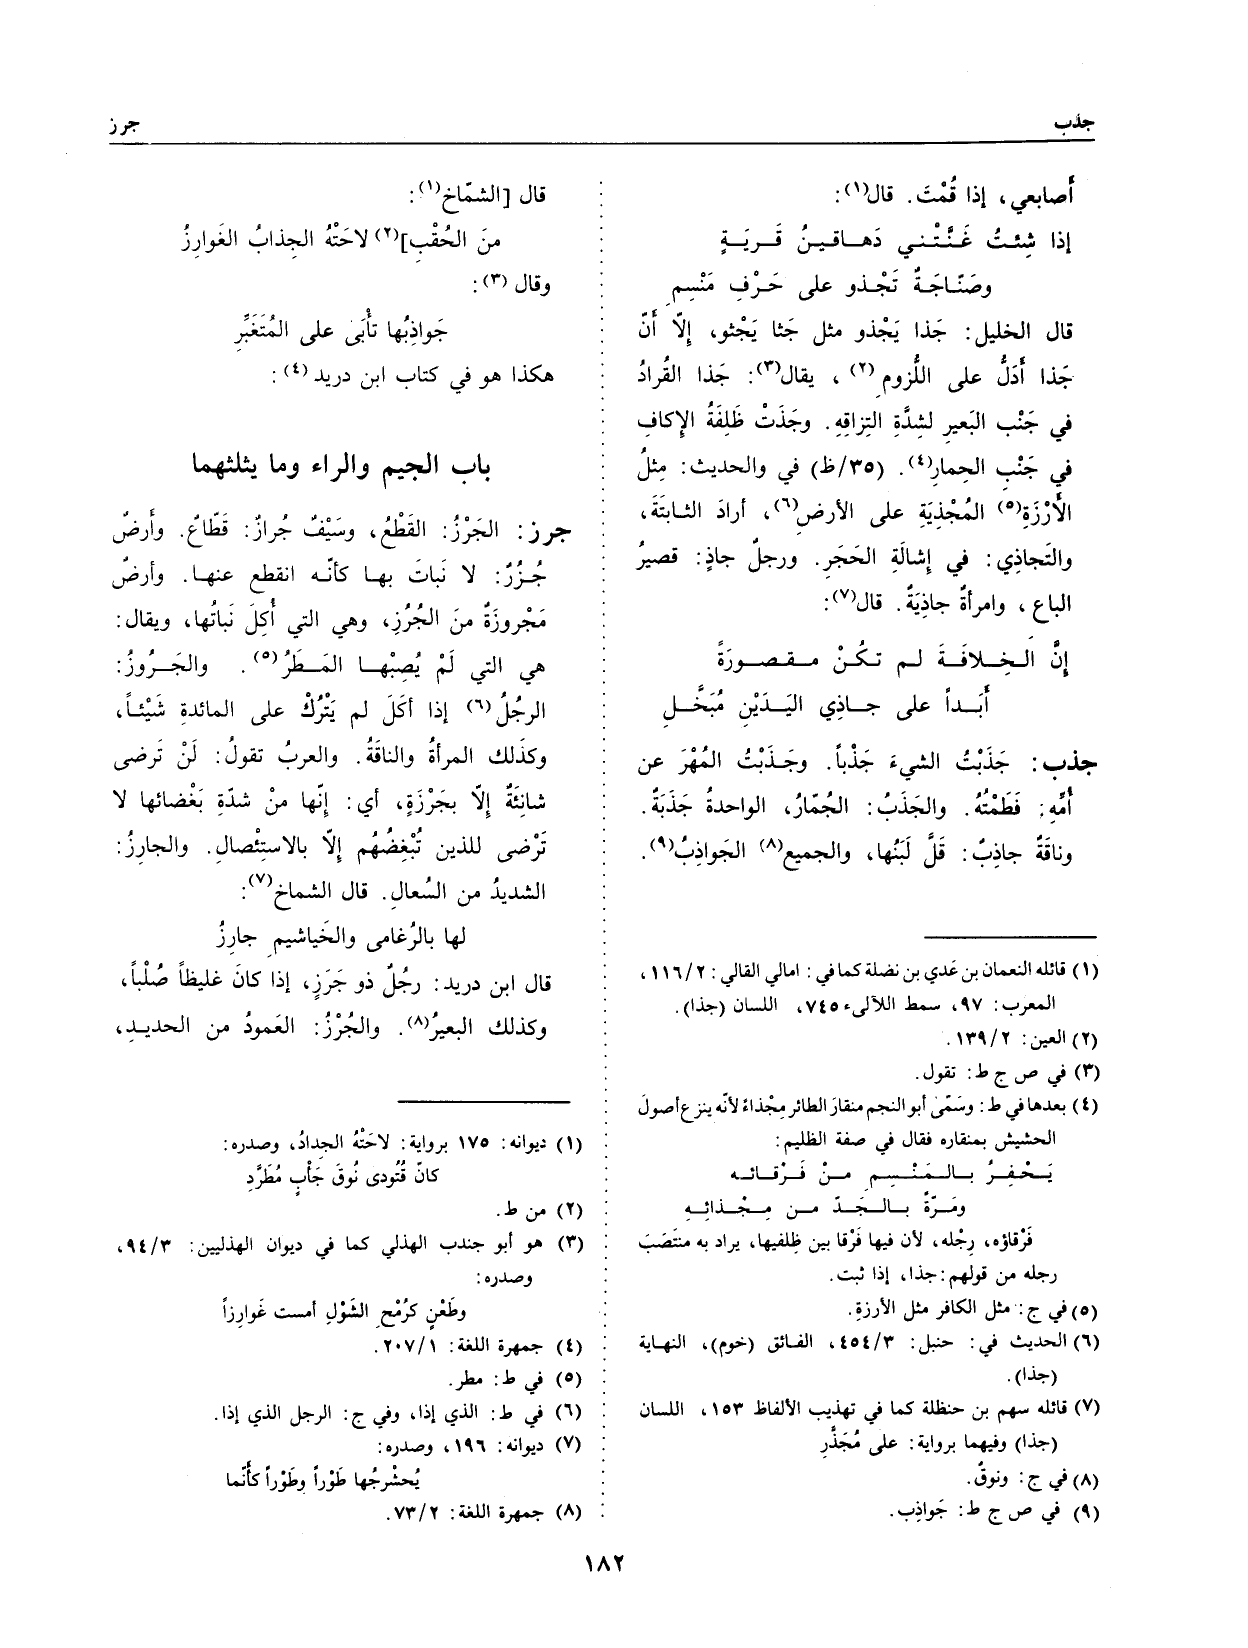 جذب
جرز
أصابعي، إذا قُمْتَ. قال(١):
إذا شِئتُ غَنَّتْني دَهـاقينُ قَـريَـةٍ
وصَنّاجَةٌ تَجْـذو على حَـرْفِ مَنْسِمِ
قال الخليل: جَذا يَجْذو مثل جَثا يَجْثو، إلّا أَنّ
جَذا أَدَلُّ على اللُّزوم(٢)، يقال(٣): جَذا القُرادُ
في جَنْب البَعير لشِدَّةِ التِزاقِهِ. وجَذَتْ ظَلِفَةُ الإكافِ
في جَنْبِ الحِمار(٤). (٣٥/ظ) في والحديث: مِثلُ
الأَرْزَةِ(٥) المُجْذِيَةِ على الأرض(٦)، أرادَ الثـابتَةَ،
والتَجاذِي: في إشالَةِ الحَجَرِ. ورجلٌ جاذٍ: قصيرُ
الباع، وامرأةٌ جاذِيَةٌ. قال(٧):
إنَّ الخِـلافَةَ لـم تكُـنْ مـقـصورَةً
أَبَـداً على جـاذِي اليَـدَيْنِ مُبَخَّـلِ
جذب: جَذَبْتُ الشيءَ جَذْباً. وجَـذَبْتُ المُهْرَ عن
أُمِّهِ: فَطَمْتُهُ. والجَذَبُ: الجُمّارُ، الواحدةُ جَذَبَةٌ.
وناقَةٌ جاذِبٌ: قَلَّ لَبَنُها، والجميع(٨) الجَواذِبُ(٩).
(١) قائله النعمان بن عَدي بن نضلة كما في: امالي القالي: ١١٦/٢،
المعرب: ٩٧، سمط اللآلىء ٧٤٥، اللسان (جذا).
(٢) العين: ١٣٩/٢.
(٣) في ص ج ط: تقول.
(٤) بعدها في ط: وسَمّى أبو النجم منقارَ الطائر مِجْذاءً لأنّه ينزع أصولَ
الحشيش بمنقاره فقال في صفة الظليم:
يَـحْفِـرُ بـالـمَنْـسِـمِ مـنْ فَـرْقـائـه
ومَـرّةً بـالـجَـدّ مـن مِـجْـذائِـهِ
فَرْقاؤه، رِجْله، لأن فيها فَرْقا بين ظِلفيها، يراد به منتَصَبَ
رجله من قولهم: جذا، إذا ثبت.
(٥) في ج: مثل الكافر مثل الأرزةِ.
(٦) الحديث في: حنبل: ٤٥٤/٣، الفـائق (خوم)، النهـاية
(جذا).
(٧) قائله سهم بن حنظلة كما في تهذيب الألفاظ ١٥٣، اللسان
(جذا) وفيهما برواية: على مُجَذَّرِ
(٨) في ج: ونوقٌ.
(٩) في ص ج ط: جَواذِب.
قال [الشمّاخ(١):
منَ الحُقْبِ](٢) لاحَتْهُ الجِذابُ الغَوارِزُ
وقال(٣):
جَواذِبُها تأْبَى على المُتَغَبِّرِ
هكذا هو في كتاب ابن دريد(٤):
باب الجيم والراء وما يثلثهما
جرز: الجَرْزُ: القَطْعُ، وسَيْفٌ جُرازٌ: قَطّاعٌ. وأَرضٌ
جُـرُزٌ: لا نَباتَ بهـا كأنّـه انقطع عنهـا. وأرضٌ
مَجْروزَةٌ منَ الجُرُزِ، وهي التي أُكِلَ نَباتُها، ويقال:
هي التي لَمْ يُصِبْهـا المَـطَرُ(٥). والجَـرُوزُ:
الرجُلُ(٦) إذا أكَلَ لم يَتْرُكْ على المائدةِ شَيْئاً،
وكذَلك المرأةُ والناقَةُ. والعربُ تقولُ: لَنْ تَرضى
شانِئَةٌ إلّا بجَرْزَةٍ، أي: إنّها منْ شدّةِ بَغْضائها لا
تَرْضى للذين تُبْغِضُهُم إلّا بالاستِئْصالِ. والجارِزُ:
الشديدُ من السُعالِ. قال الشماخ(٧):
لها بالرُغامى والخَياشيمِ جارِزُ
قال ابن دريد: رجُلٌ ذو جَرَزٍ، إذا كانَ غليظاً صُلْباً،
وكذلك البعيرُ(٨). والجُرْزُ: العَمودُ من الحديـدِ،
(١) ديوانه: ١٧٥ برواية: لاحَتْهُ الجِدادُ، وصدره:
كانّ قُتُودى نُوقَ جَأْبٍ مُطَرَّدٍ
(٢) من ط.
(٣) هو أبو جندب الهذلي كما في ديوان الهذليين: ٩٤/٣،
وصدره:
وطَعْنٍ كرُمْحِ الشَوْلِ أمست غَوارِزاً
(٤) جمهرة اللغة: ٢٠٧/١.
(٥) في ط: مطر.
(٦) في ط: الذي إذا، وفي ج: الرجل الذي إذا.
(٧) ديوانه: ١٩٦، وصدره:
يُحشْرِجُها طَوْراً وطَوْراً كأَنّما
(٨) جمهرة اللغة: ٧٣/٢.
١٨٢